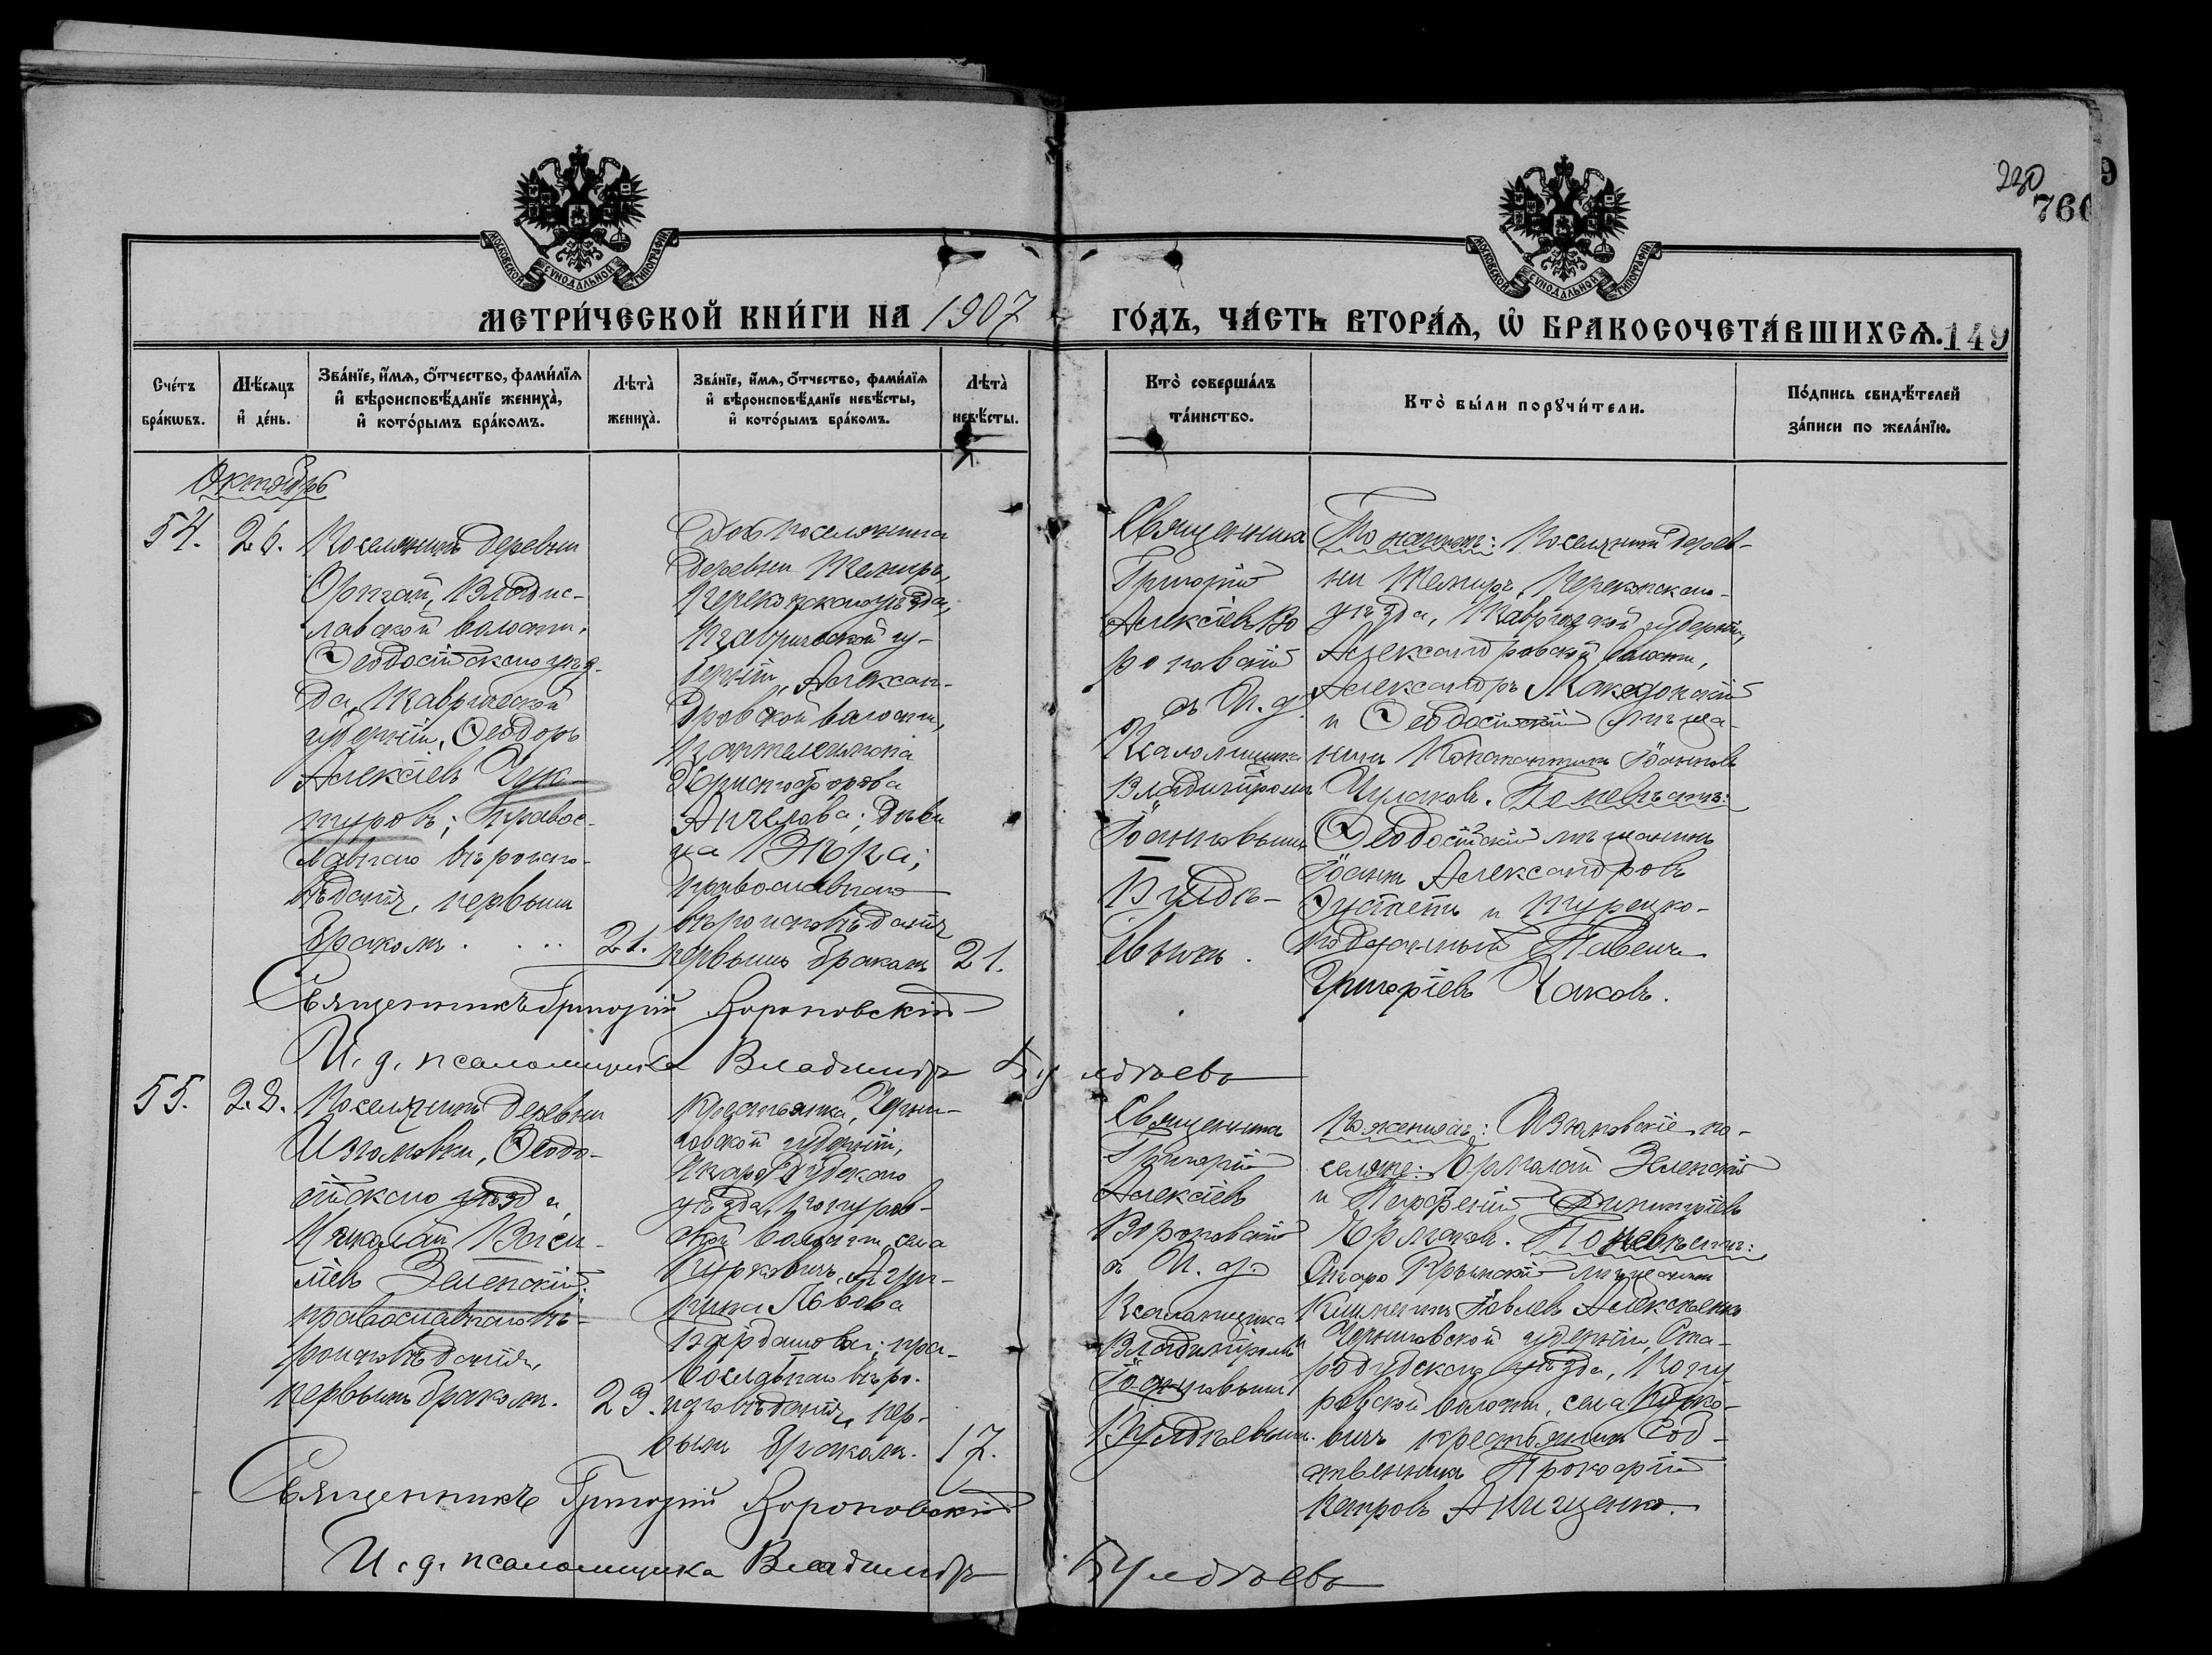 230
760
9
МОСКОВСКОЙ СѴНОДАЛЬНОЙ ТИПОГРАФІИ
МОСКОВСКОЙ СѴНОДАЛЬНОЙ ТИПОГРАФІИ
МЕТРИ́ЧЕСКОЙ КНИ́ГИ НА 1907
ГО́ДЪ, ЧА́СТЬ ВТОРА́Ѧ, Ѡ҆ БРАКОСОЧЕТА́ВШИХСѦ. 149
Сче́тъ
бра́кѡвъ.
Мѣ́сяцъ
и҆ де́нь.
Зва́нїе, и҆́мѧ, ѻ҆́тчество, фами́лїѧ
и҆ вѣроисповѣ́данїе жениха̀,
и҆ кото́рымъ бра́комъ.
Лѣта̀
жениха̀.
Зва́нїе, и҆́мѧ, ѻ҆́тчество, фами́лїѧ
и҆ вѣроисповѣ́данїе невѣ́сты,
и҆ кото́рымъ бра́комъ.
Лѣта̀
невѣ́сты.
Кто̀ соверша́лъ
та́инство.
Кто̀ бы́ли порꙋчи́тели.
По́дпись свидѣ́телей
за́писи по жела́нїю.
Октябрь
54.
26.
Поселянинъ деревни
Владис-
лавской волости,
Ѳеодосійскаго уѣз-
да, Таврической
губерніи, Ѳеодоръ
Алексіевъ Чук-
туровъ; правос-
лавнаго вѣроиспо-
вѣданія, первымъ
бракомъ . . ..
21.
Дочь поселянина
деревни
Перекопскаго уѣзда,
Таврической гу-
берніи, Алексан-
дровской волости,
Христофорова
Ангелова; дѣви-
ца Вѣра;
православнаго
вѣроисповѣданія
первымъ бракомъ
21.
Священникъ
Григорій
Алексіевъ Во
роновскій
съ И. д.
Псаломщика
Владиміромъ
Іоанновымъ
Булдѣ-
евымъ.
По женихѣ: Поселянинъ дерев-
ни Перекопскаго
уѣзда, Таврической губерніи,
Александровской волости,
Александръ Македонскій
и Ѳеодосійскій мѣща-
нинъ Константинъ Іоанновъ
Чулаковъ. По невѣстѣ:
Ѳеодосійскій мѣщанинъ
Іоаннъ Александровъ
и турецко-
подданный Павелъ
Григоріевъ Чаковъ.
Священникъ Григорій Вороновскій
И. д. псаломщика Владиміръ Булдѣевъ
55.
28.
Поселянинъ деревни
Изюмовки, Ѳеодо-
сійскаго уѣзда,
Николай Васи-
ліевъ Зеленскій;
православнаго вѣ-
роисповѣданія,
первымъ бракомъ.
23.
Крестьянка, Черни-
говской губерніи,
Стародубскаго
уѣзда,
ской волости, села
Курковичъ, Агри-
пина Львова
пра-
вославнаго вѣро-
исповѣданія, пер-
вымъ бракомъ.
17.
Священникъ
Григорій
Алексіевъ
Вороновскій
съ И. д.
Псаломщика
Владиміромъ
Іоанновымъ
Булдѣевымъ.
По женихѣ: Изюмовскіе по-
селяне: Ермолай Зеленскій
и Парфеній Димитріевъ
Ермаковъ. По невѣстѣ:
Старо Крымскій мѣщанинъ
Климентъ Іовлевъ Алексѣенко
и Черниговской губерніи, Ста-
родубскаго уѣзда,
ровской волости, села Курко-
вичъ крестьянинъ соб-
ственникъ Прокофій
Петровъ Анищенко.
Священникъ Григорій Вороновскій
И. д. псаломщика Владиміръ Булдѣевъ